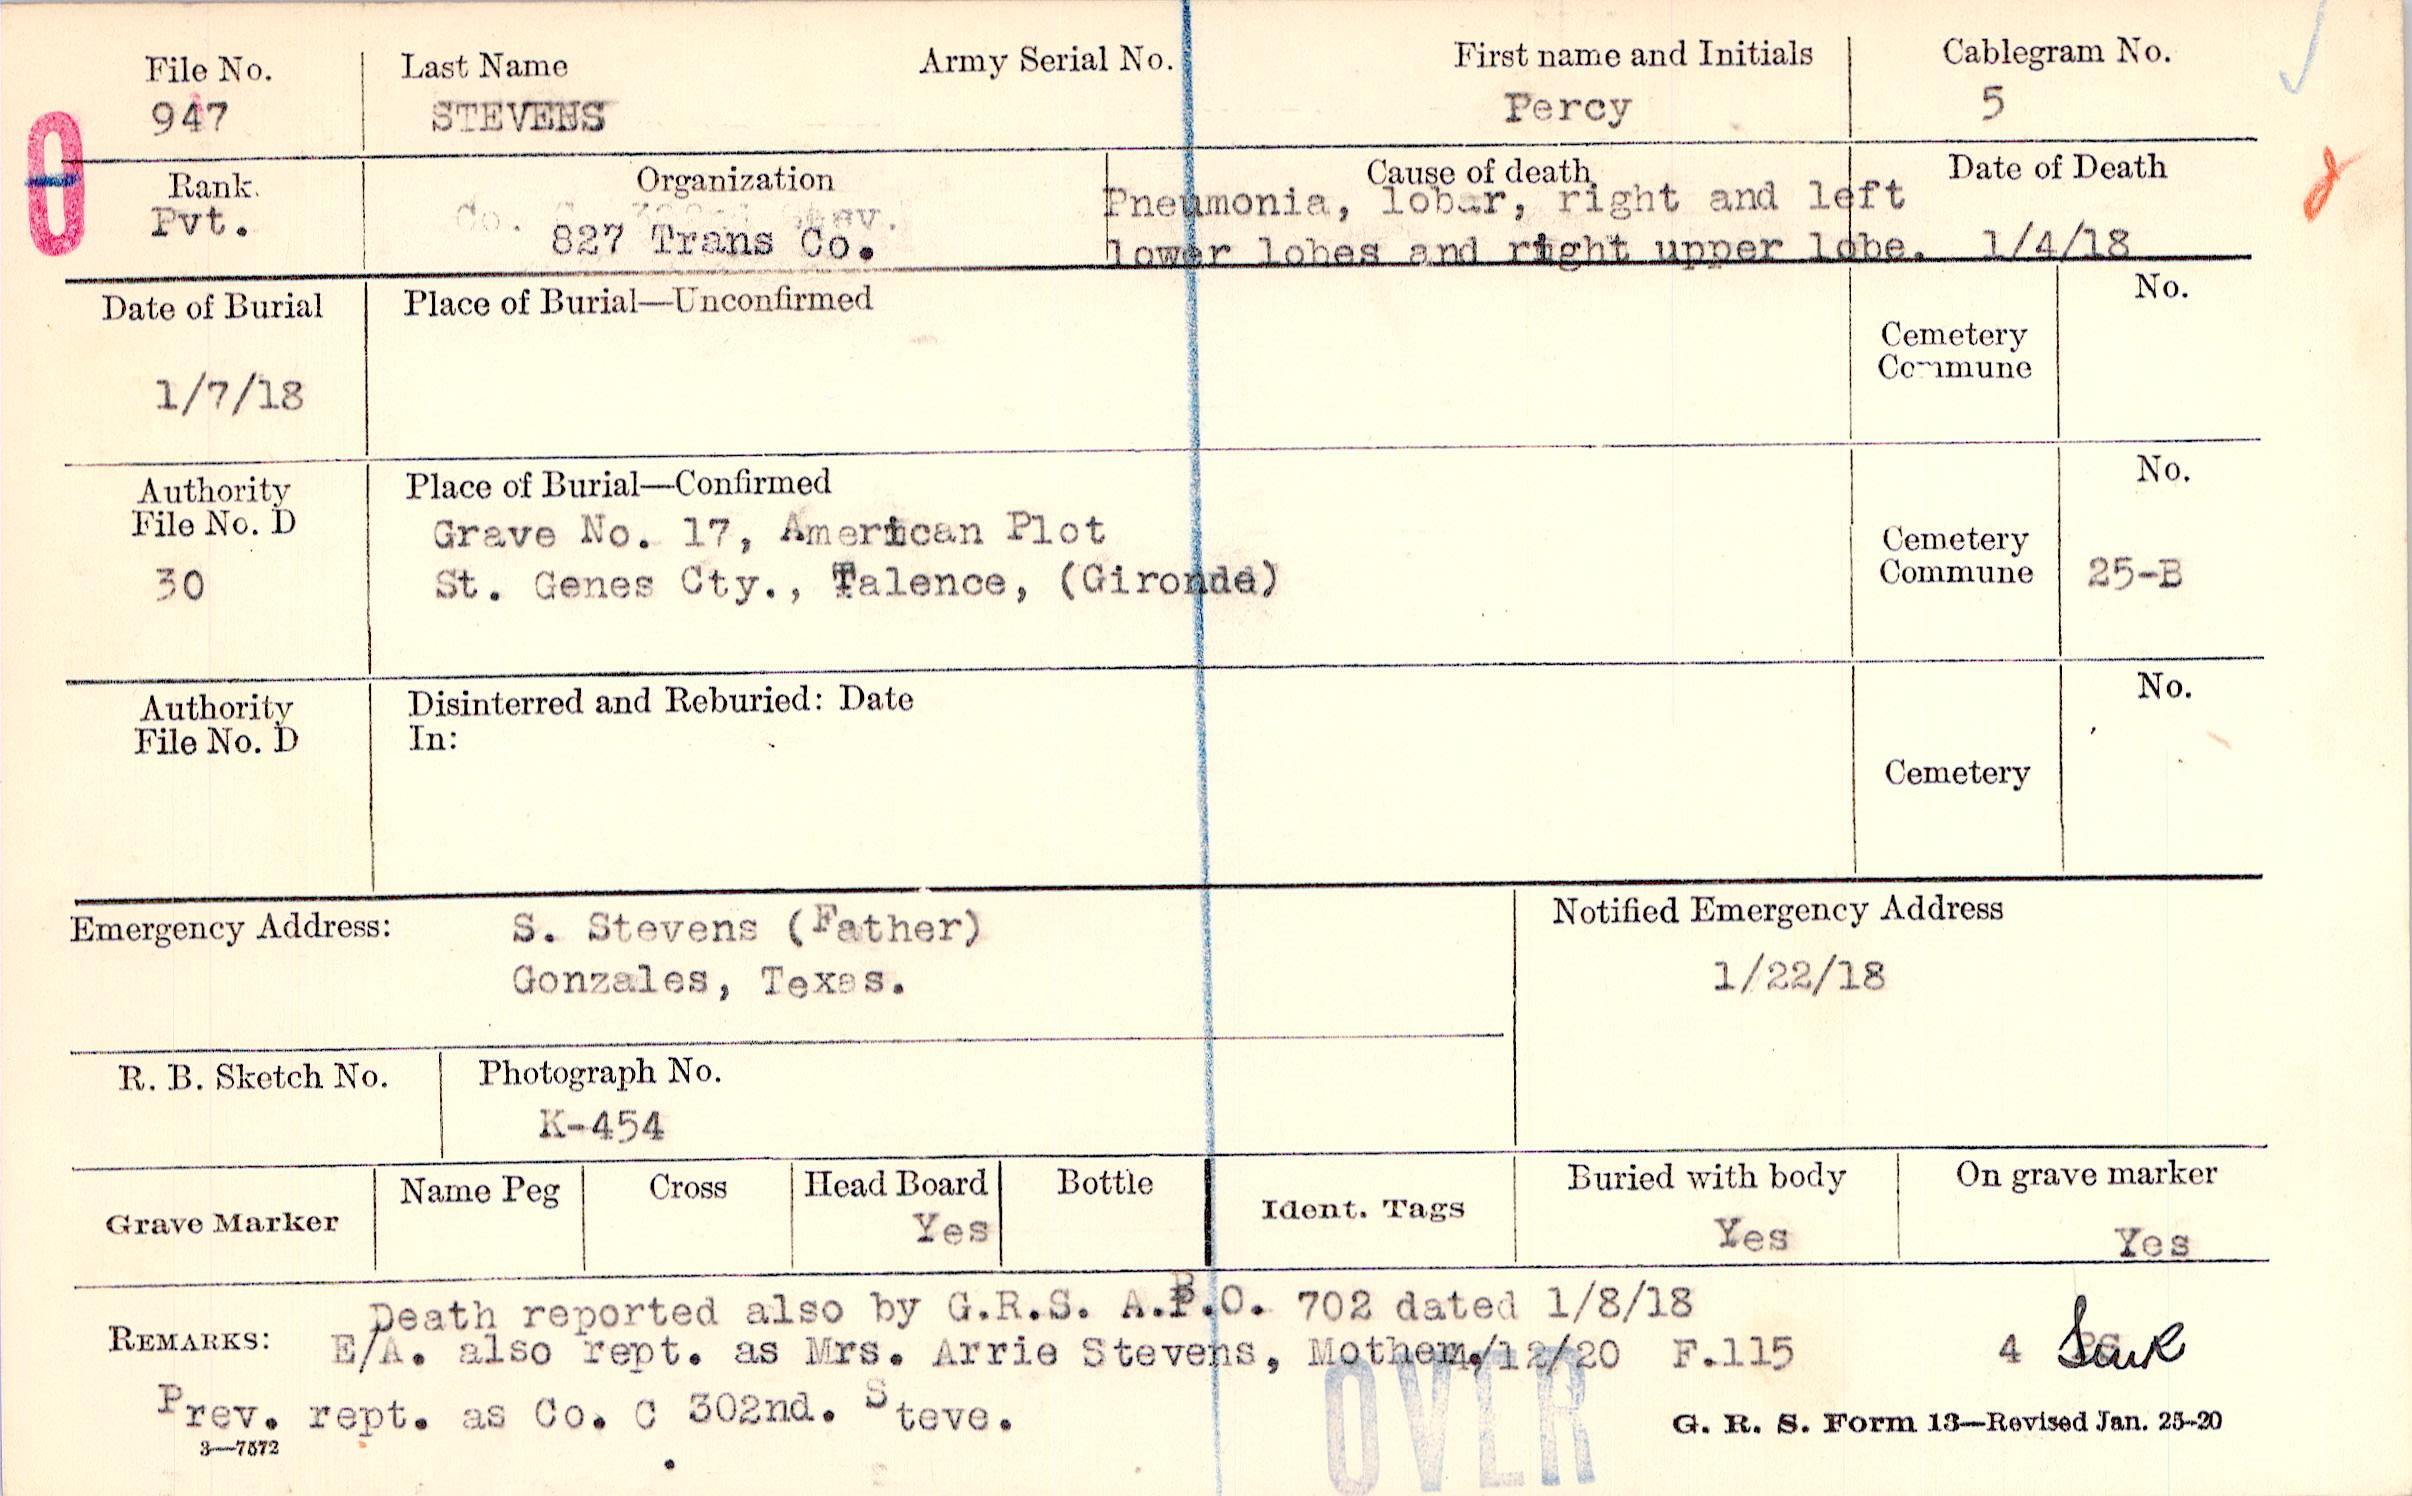 File No. Last Name Army Serial No. First name and Initials Cablegram No.
947 STEVENS Percy 5
0
Rank. Organization Cause of death Date of Death
Pvt. Co. Pneumonia, lobar, right and left
827 Trans Co. lower lobes and right upper lobe. 1/4/18
Date of Burial Place of Burial—Unconfirmed No.
Cemetery
Commune
1/7/18
Authority Place of Burial—Confirmed No.
File No. D Grave No. 17, American Plot Cemetery
30 St. Genes Cty., Talence, (Gironde) Commune 25-B
Authority Disinterred and Reburied: Date No.
File No. D In:
Cemetery
Emergency Address: S. Stevens (Father) Notified Emergency Address
Gonzales, Texas. 1/22/18
R. B. Sketch No. Photograph No.
K-454
Grave Marker Name Peg Cross Head Board Bottle Ident. Tags Buried with body On grave marker
Yes Yes Yes
Death reported also by G.R.S. A.P.O. 702 dated 1/8/18
REMARKS: E/A. also rept. as Mrs. Arrie Stevens, Mother. /12/20 F.115 4
Prev. rept. as Co. C 302nd. Steve.
3—7572 OVER G. R. S. Form 13—Revised Jan. 25-20